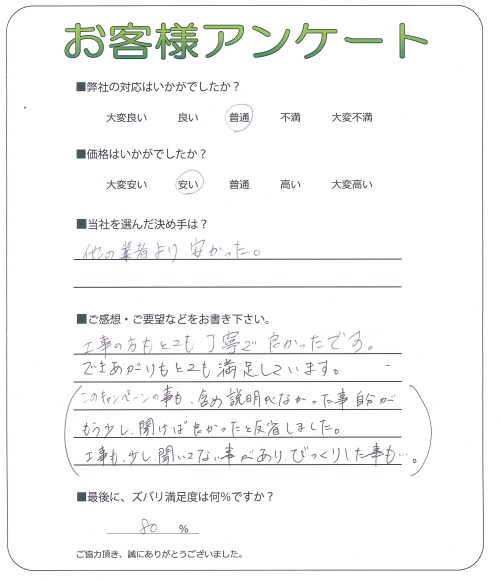 お客様アンケート
■弊社の対応はいかがでしたか？
大変良い 良い 普通 不満 大変不満
■価格はいかがでしたか？
大変安い 安い 普通 高い 大変高い
■当社を選んだ決め手は？
他の業者より安かった。
■ご感想・ご要望などをお書き下さい。
工事の方もとても丁寧で良かったです。
できあがりもとても満足しています。
(このキャンペーンの事も、含め説明がなかった事自分が
もう少し、聞けば良かったと反省しました。
工事も、少し、聞いてない事があり、びっくりした事も…。)
■最後に、ズバリ満足度は何％ですか？
80 ％
ご協力頂き、誠にありがとうございました。